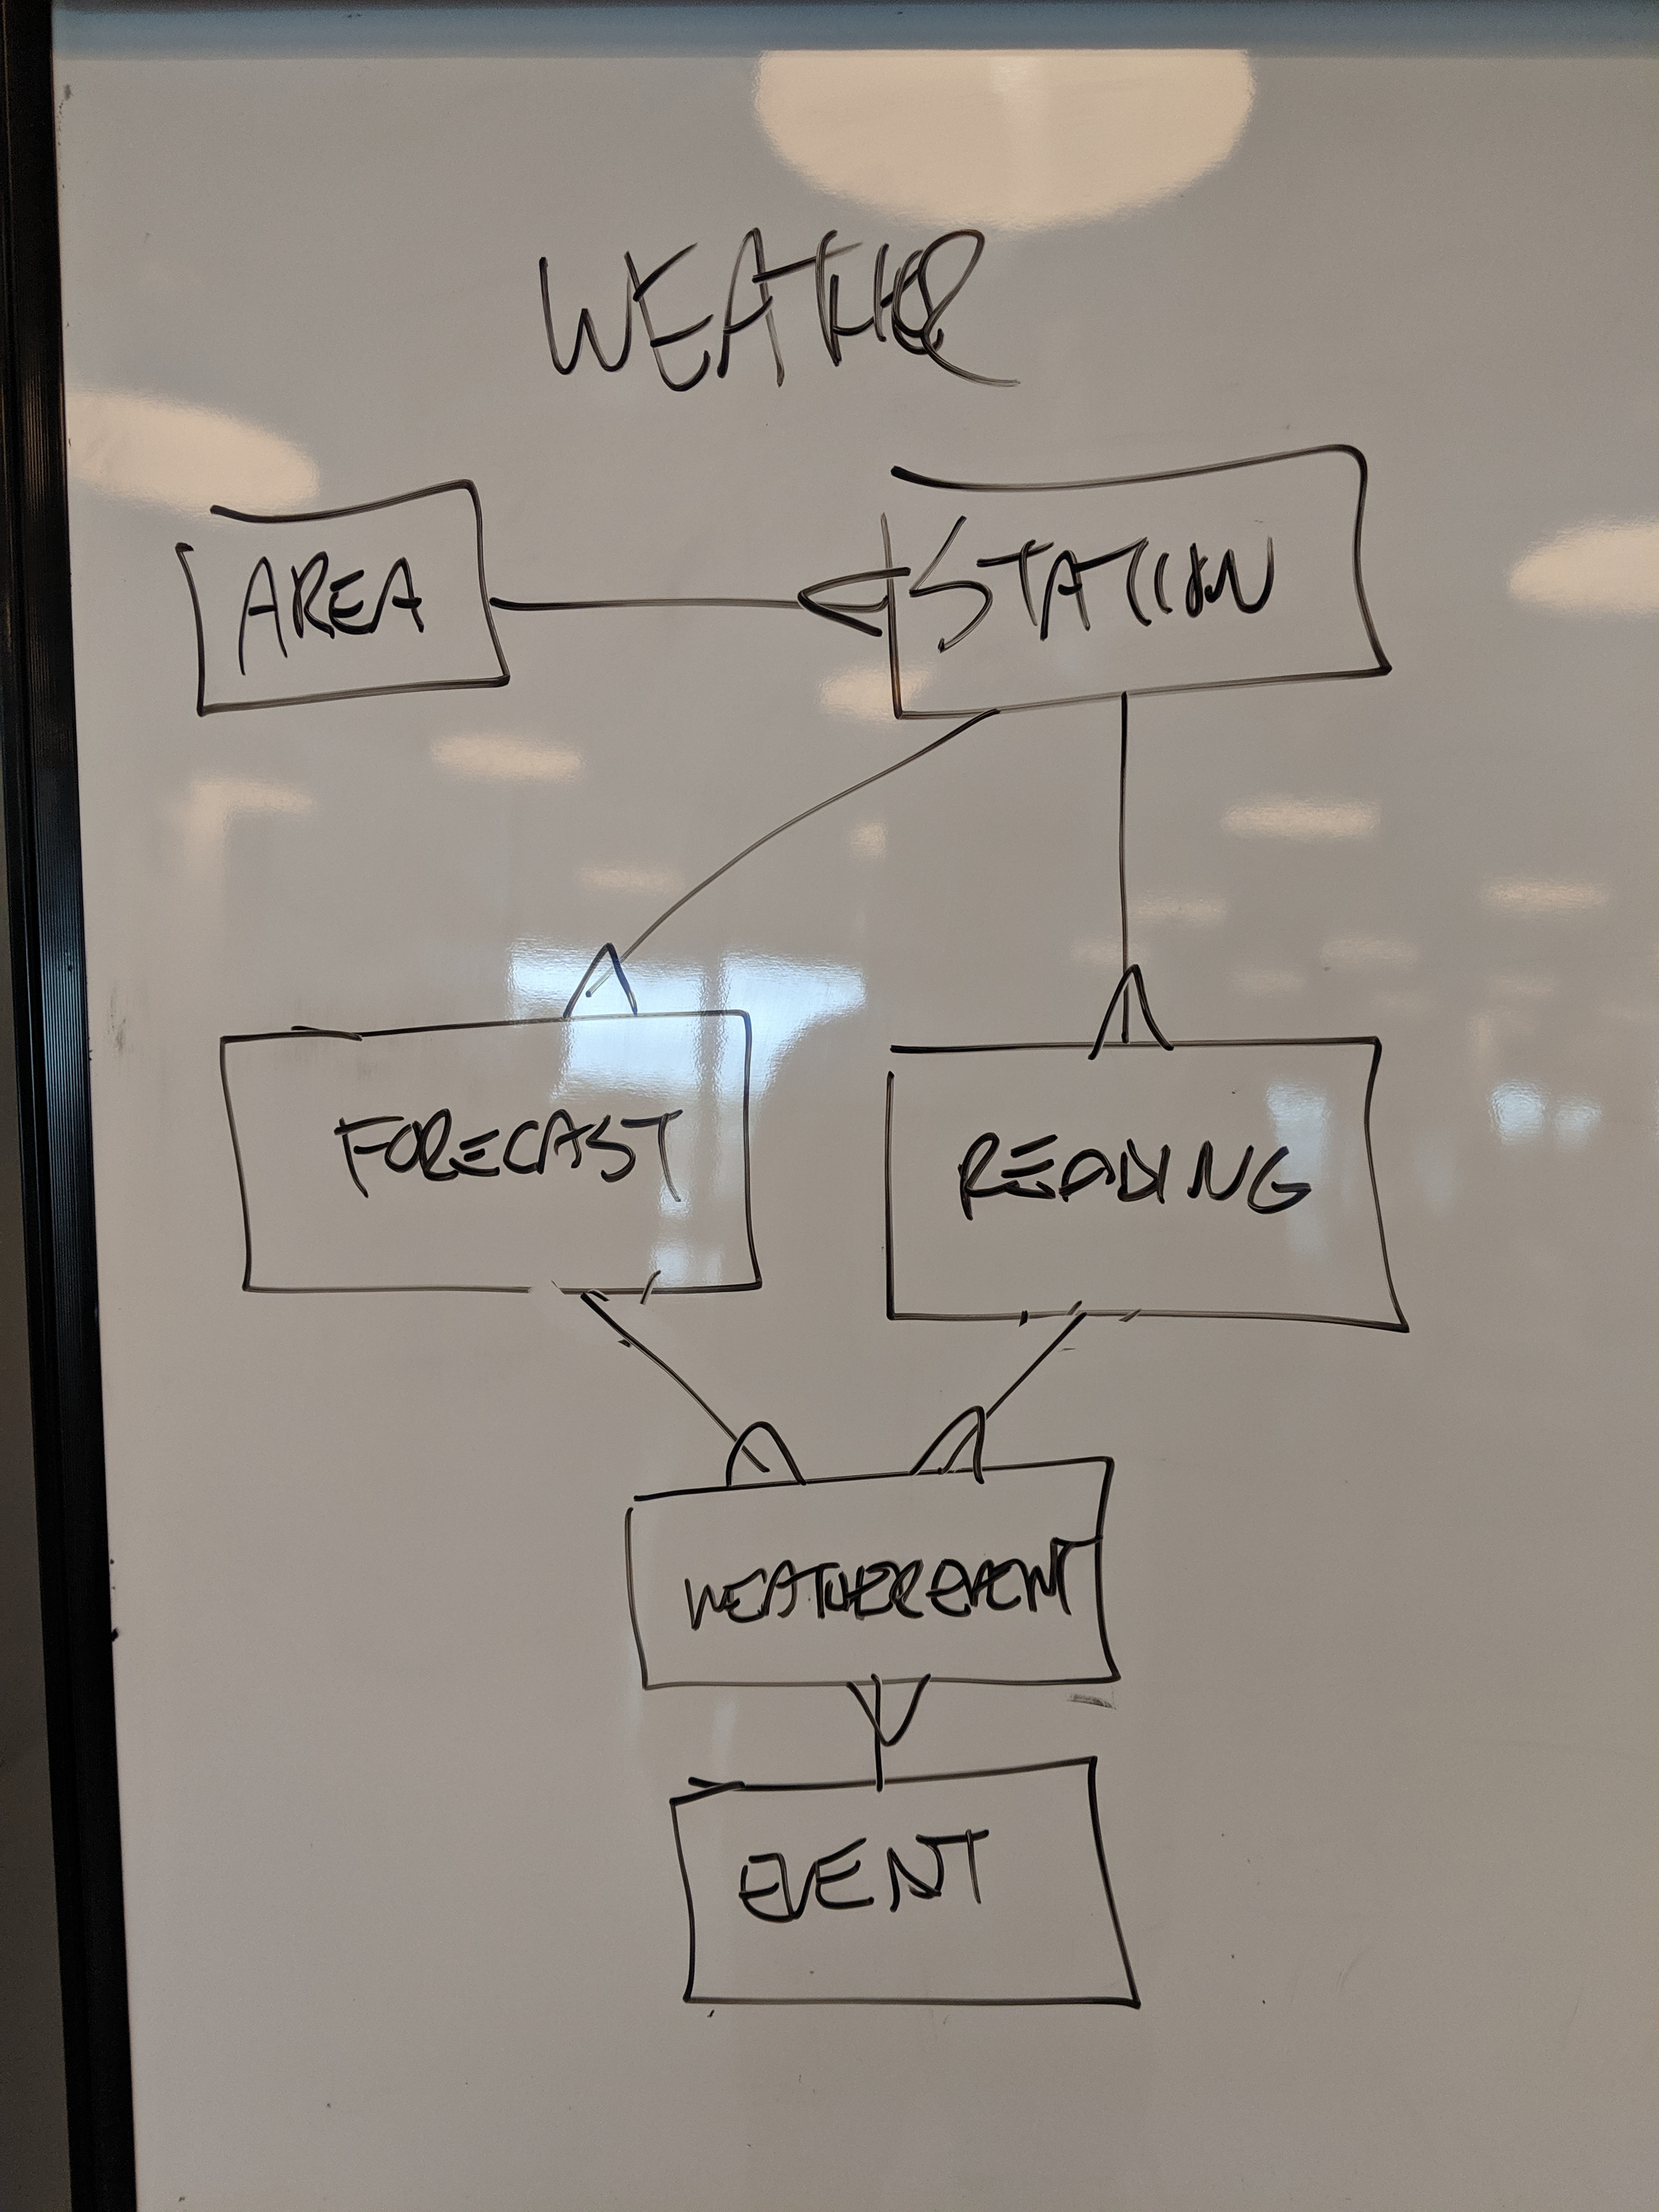 WEATHER
AREA
STATION
FORECAST
READING
WEATHEREVENT
EVENT